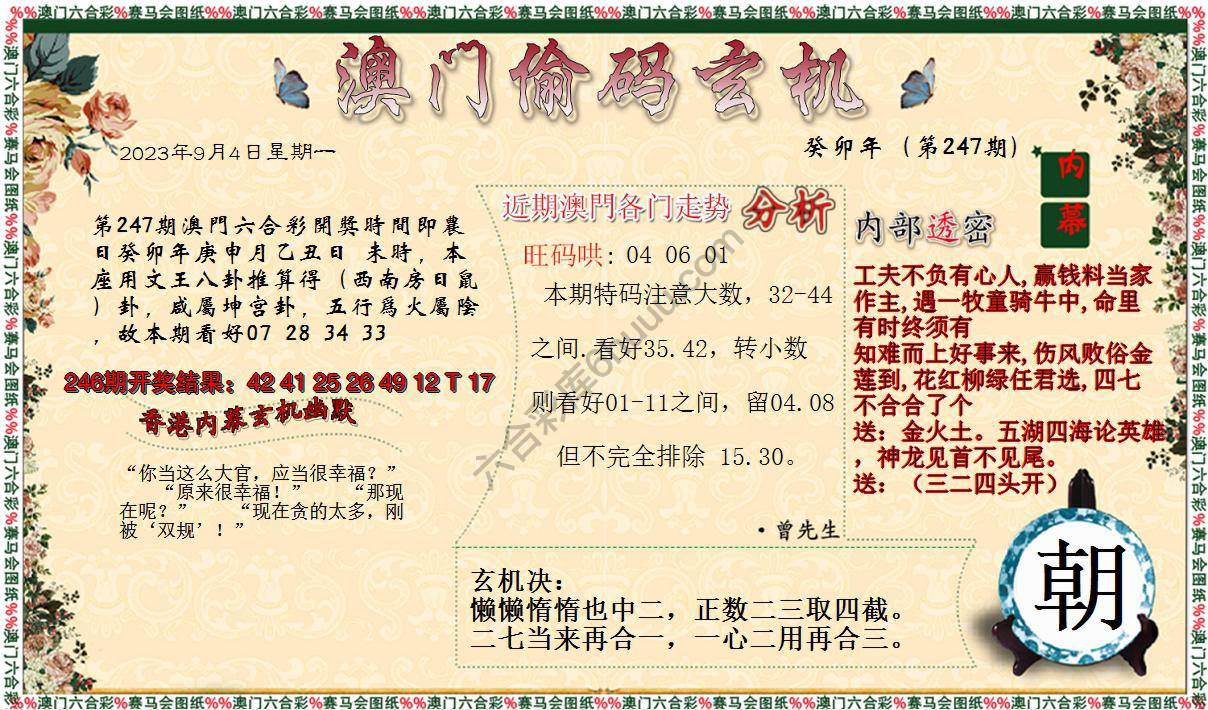 %%澳门六合彩%赛马会图纸%%澳门六合彩%赛马会图纸%%澳门六合彩%赛马会图纸%%澳门六合彩%赛马会图纸%%澳门六合彩%赛马会图纸%%澳门六合彩%赛马会图纸
澳门偷码玄机
2023年9月4日星期一
癸卯年（第247期）
内幕
第247期澳門六合彩開獎時間即農
日癸卯年庚申月乙丑日 未時，本
座用文王八卦推算得（西南房日鼠
）卦，咸屬坤宫卦，五行爲火屬陰
，故本期看好07 28 34 33
246期开奖结果：42 41 25 26 49 12 T 17
香港内幕玄机幽默
“你当这么大官，应当很幸福？”
“原来很幸福！” “那现
在呢？” “现在贪的太多，刚
被‘双规’！”
近期澳門各门走势 分析
旺码哄: 04 06 01
本期特码注意大数，32-44
之间.看好35.42，转小数
则看好01-11之间，留04.08
但不完全排除 15.30。
·曾先生
内部透密
工夫不负有心人,赢钱料当家
作主,遇一牧童骑牛中,命里
有时终须有
知难而上好事来,伤风败俗金
莲到,花红柳绿任君选,四七
不合合了个
送：金火土。五湖四海论英雄
，神龙见首不见尾。
送：（三二四头开）
玄机决：
懒懒惰惰也中二，正数二三取四截。
二七当来再合一，一心二用再合三。
朝
六合彩库
%%澳门六合彩%赛马会图纸%%澳门六合彩%赛马会图纸%%澳门六合彩%赛马会图纸%%澳门六合彩%赛马会图纸%%澳门六合彩%赛马会图纸%%澳门六合彩%赛马会图纸